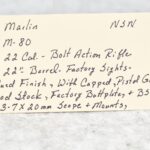 Marlin NSN
M-80
22 Cal. - Bolt Action Rifle
22" Barrel - Factory Sights -
ued Finish, With Capped, Pistol G
od Stock, Factory Buttplate, + BS
3-7X20mm Scope + Mounts,